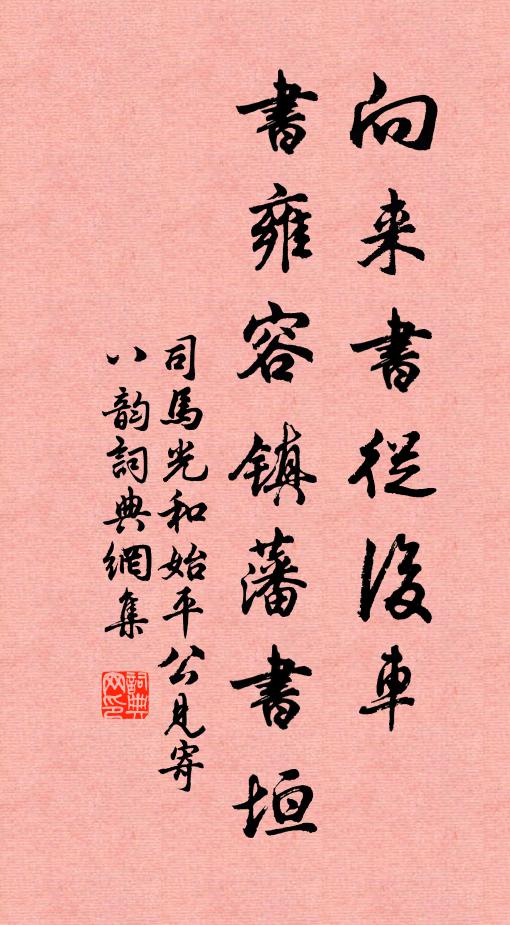 向来書從後車
書雍容鎮藩書垣
司馬光和始平公見寄
八韵詞典網集
詞典网印